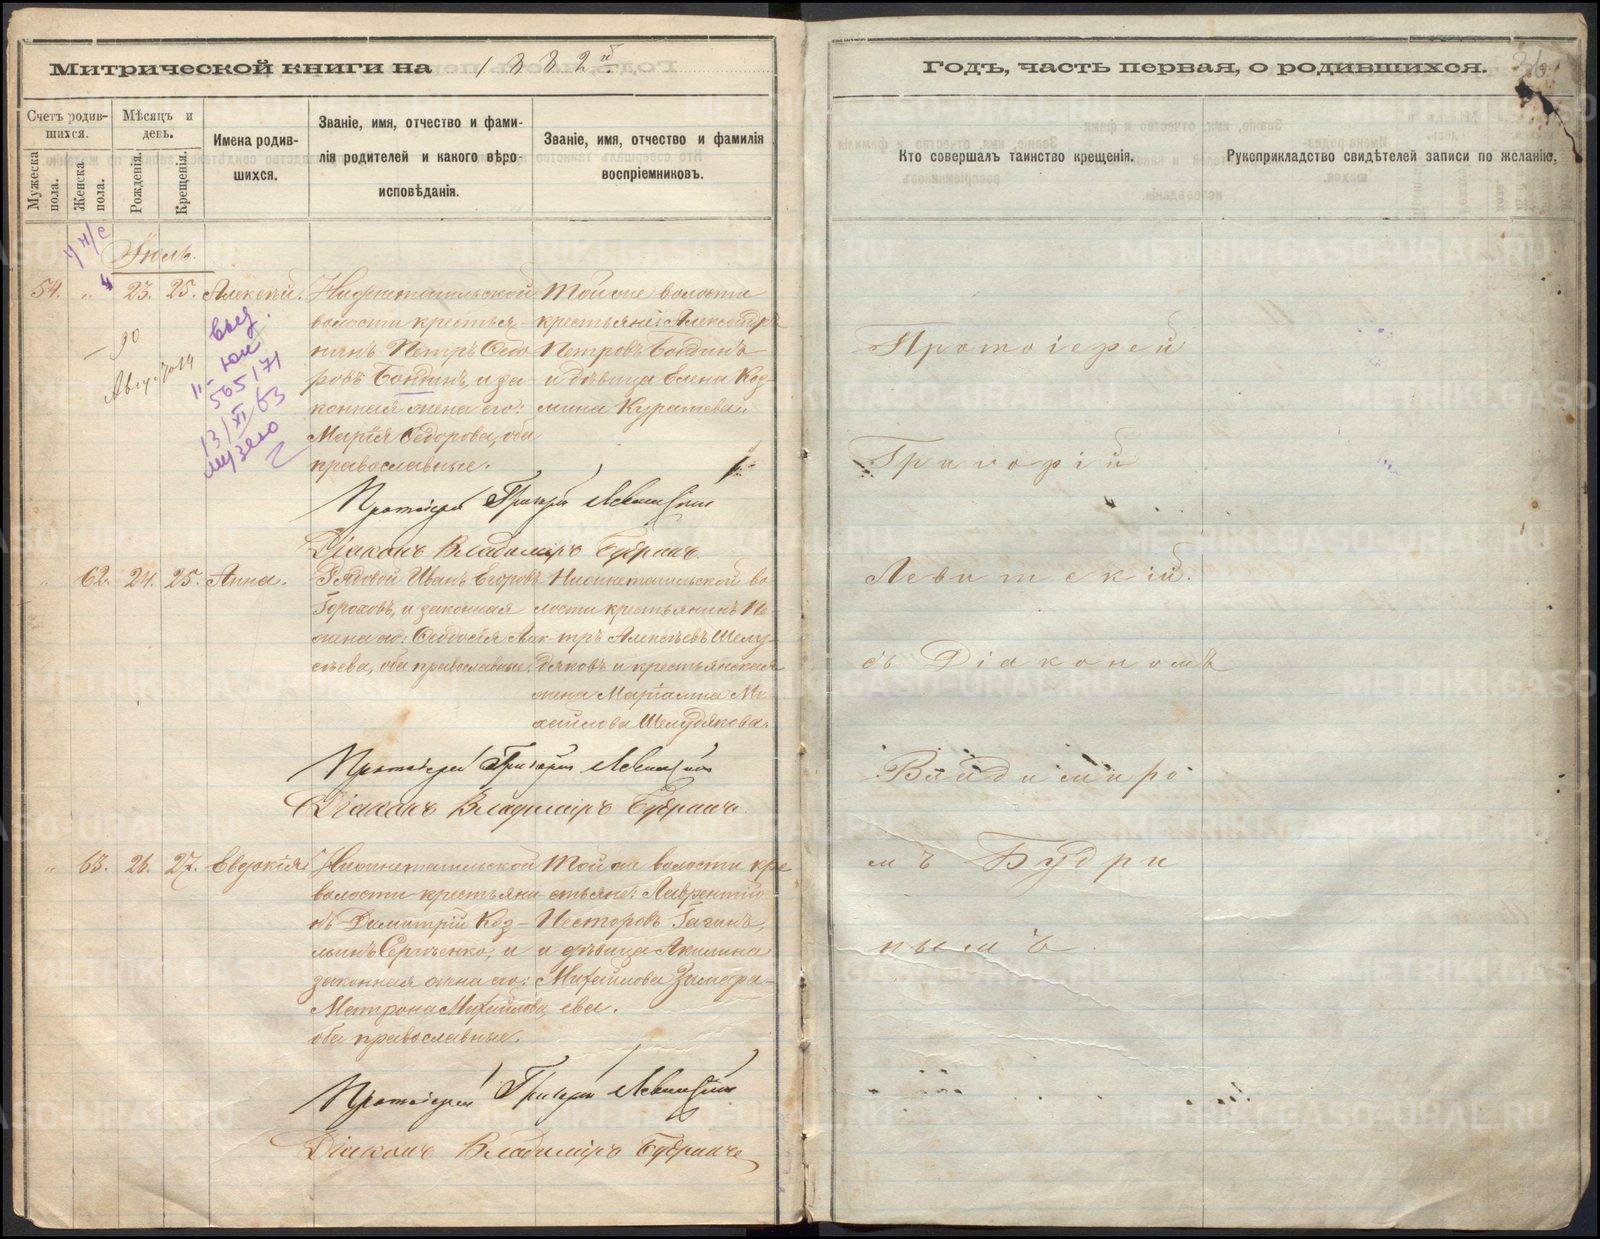 Митрической книги на 1882й
Годъ, часть первая, о родившихся.
36
Счетъ родив-
шихся.
Мужеска
пола.
Женска
пола.
Мѣсяцъ и
день.
Рожденія.
Крещенія.
Имена родив-
шихся.
Званіе, имя, отчество и фами-
лія родителей и какого вѣро-
исповѣданія.
Званіе, имя, отчество и фамилія
воспріемниковъ.
Кто совершалъ таинство крещенія.
Рукоприкладство свидѣтелей записи по желанію.
Іюль.
54. " 23. 25. Алексѣй.
Нижнетагильской
волости крестья-
нинъ Петръ Ѳедо
ровъ Бондинъ и за-
конная жена его:
Марія Ѳедорова, оба
православные.
Той же волости
крестьяне: Александръ
Петровъ Бондинъ
и дѣвица Елена Коз-
мина Куратева.
90
565171
13/XI 63
Протоіерей Григорій Левитскій
Діаконъ Владиміръ Будринъ
" 62. 24. 25. Анна.
Рядовой Иванъ Егоровъ
Гороховъ, и законная
жена его: Ѳеодосія Алек
сѣева, оба православные.
Нижнетагильской во
лости крестьянинъ Пе
тръ Алексѣевъ Шелу-
дяковъ и крестьянская
жена Маріамна Ми
хайлова Шелудякова.
Протоіерей Григорій Левитскій
Діаконъ Владиміръ Будринъ
" 63. 26. 27. Евдокія.
Нижнетагильской
волости крестьяни
нъ Димитрій Коз-
минъ Сергѣенко, и
законная жена его:
Матрона Михайлова
оба православные.
Той же волости кре
стьяне: Лаврентій
Несторовъ Гагинъ,
и дѣвица Акилина
Михайлова Замара-
ева.
Протоіерей Григорій Левитскій
Діаконъ Владиміръ Будринъ
Протоіерей
Григорій
Левитскій.
съ Діакономъ
Владиміро
мъ Будри
нымъ
METRIKI.GASO-URAL.RU